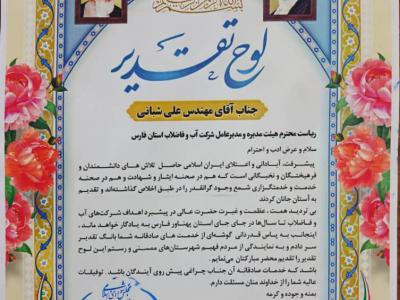 لوح تقدیر
جناب آقای مهندس علی شبانی
ریاست محترم هیئت مدیره و مدیرعامل شرکت آب و فاضلاب استان فارس
سلام و عرض ادب و احترام
پیشرفت، آبادانی و اعتلای ایران اسلامی حاصل تلاش های دانشمندان و
فرهیختگان و نخبگانی است که هم در صحنه ایثار و شهادت و هم در صحنه
خدمت و خدمتگزاری شمع وجود گرانقدر را در طبق اخلاص گذاشته‌اند و تقدیم
به آستان جانان کردند
بی تردید همت، عظمت و غیرت حضرت عالی در پیشبرد اهداف شرکت‌های آب
و فاضلاب تا سال‌ها در جای جای استان پهناور فارس به یادگار خواهد ماند.
اینجانب به پاس قدردانی گوشه‌ای از خدمت های صادقانه شما بانگ تقدیر
سر دادم و به نمایندگی از مردم فهیم شهرستان‌های ممسنی و رستم این لوح
تقدیر را تقدیم محضر مبارکتان می‌نمایم.
باشد که خدمات صادقانه آن جناب چراغی پیش روی آیندگان باشد. توفیقات
عالیه شما را از خداوند منان مسئلت دارم.
بمنه و جوده و کرمه